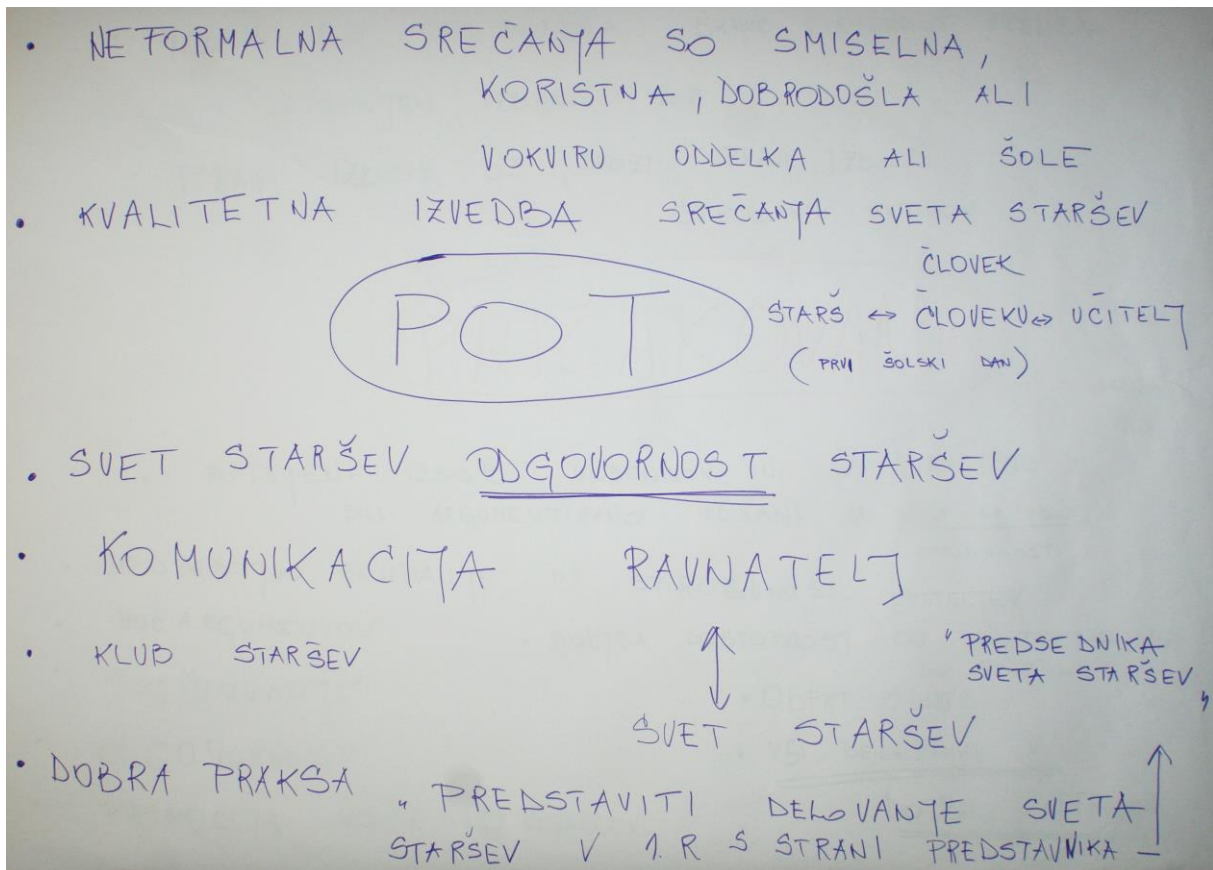 • NEFORMALNA SREČANJA SO SMISELNA,
KORISTNA, DOBRODOŠLA ALI
V OKVIRU ODDELKA ALI ŠOLE
• KVALITETNA IZVEDBA SREČANJA SVETA STARŠEV
POT
ČLOVEK
STARŠ ↔ ČLOVEKU ↔ UČITELJ
(PRVI ŠOLSKI DAN)
• SVET STARŠEV ODGOVORNOST STARŠEV
• KOMUNIKACIJA RAVNATELJ
• KLUB STARŠEV
"PREDSEDNIKA
SVETA STARŠEV"
SVET STARŠEV
• DOBRA PRAKSA
"PREDSTAVITI DELOVANJE SVETA
STARŠEV V 1. R S STRANI PREDSTAVNIKA